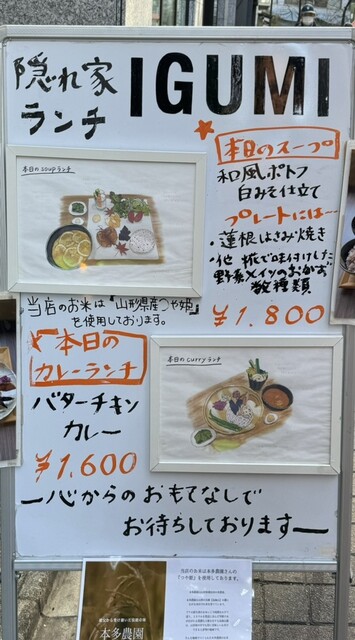 隠れ家
ランチ
IGUMI
本日のスープ
和風ポトフ
白みそ仕立て
プレートには…
・蓮根はさみ焼き
・他 糀で味付けした
野菜メインのおかず
数種類
¥1.800
本日のSOUPランチ
当店のお米は"山形県産つや姫"
を使用しております。
本日の
カレーランチ
バターチキン
カレー
¥1.600
本日のcurryランチ
一心からのおもてなしで
お待ちしております一
当店のお米は本多農園さんの
「つや姫」を使用しております。
本多農園